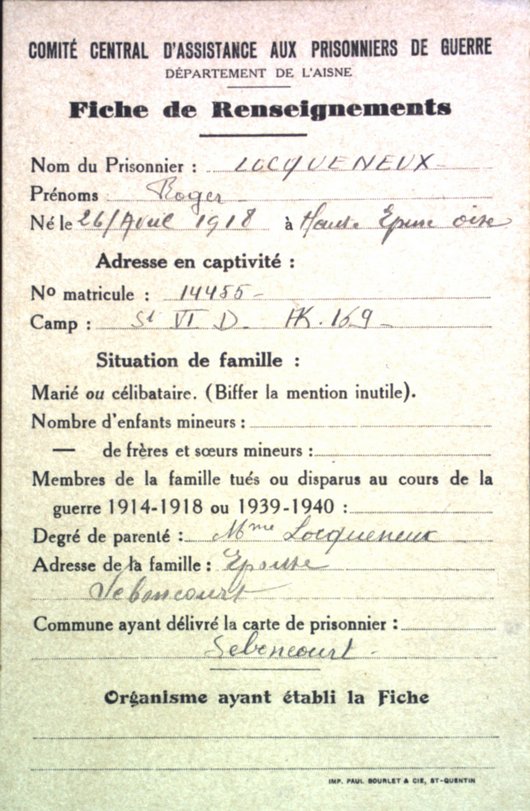 COMITÉ CENTRAL D'ASSISTANCE AUX PRISONNIERS DE GUERRE
DÉPARTEMENT DE L'AISNE
Fiche de Renseignements
Nom du Prisonnier : LOCQUENEUX
Prénoms Roger
Né le 26/Avril 1918 à Haute Epine Oise
Adresse en captivité :
No matricule : 14455
Camp : St VI D. AK. 169
Situation de famille :
Marié ou célibataire. (Biffer la mention inutile).
Nombre d'enfants mineurs :
— de frères et sœurs mineurs :
Membres de la famille tués ou disparus au cours de la
guerre 1914-1918 ou 1939-1940 :
Degré de parenté : Mme Locqueneux
Adresse de la famille : Epouse
Seboncourt
Commune ayant délivré la carte de prisonnier :
Seboncourt
Organisme ayant établi la Fiche
IMP. PAUL BOURLET & CIE, ST-QUENTIN